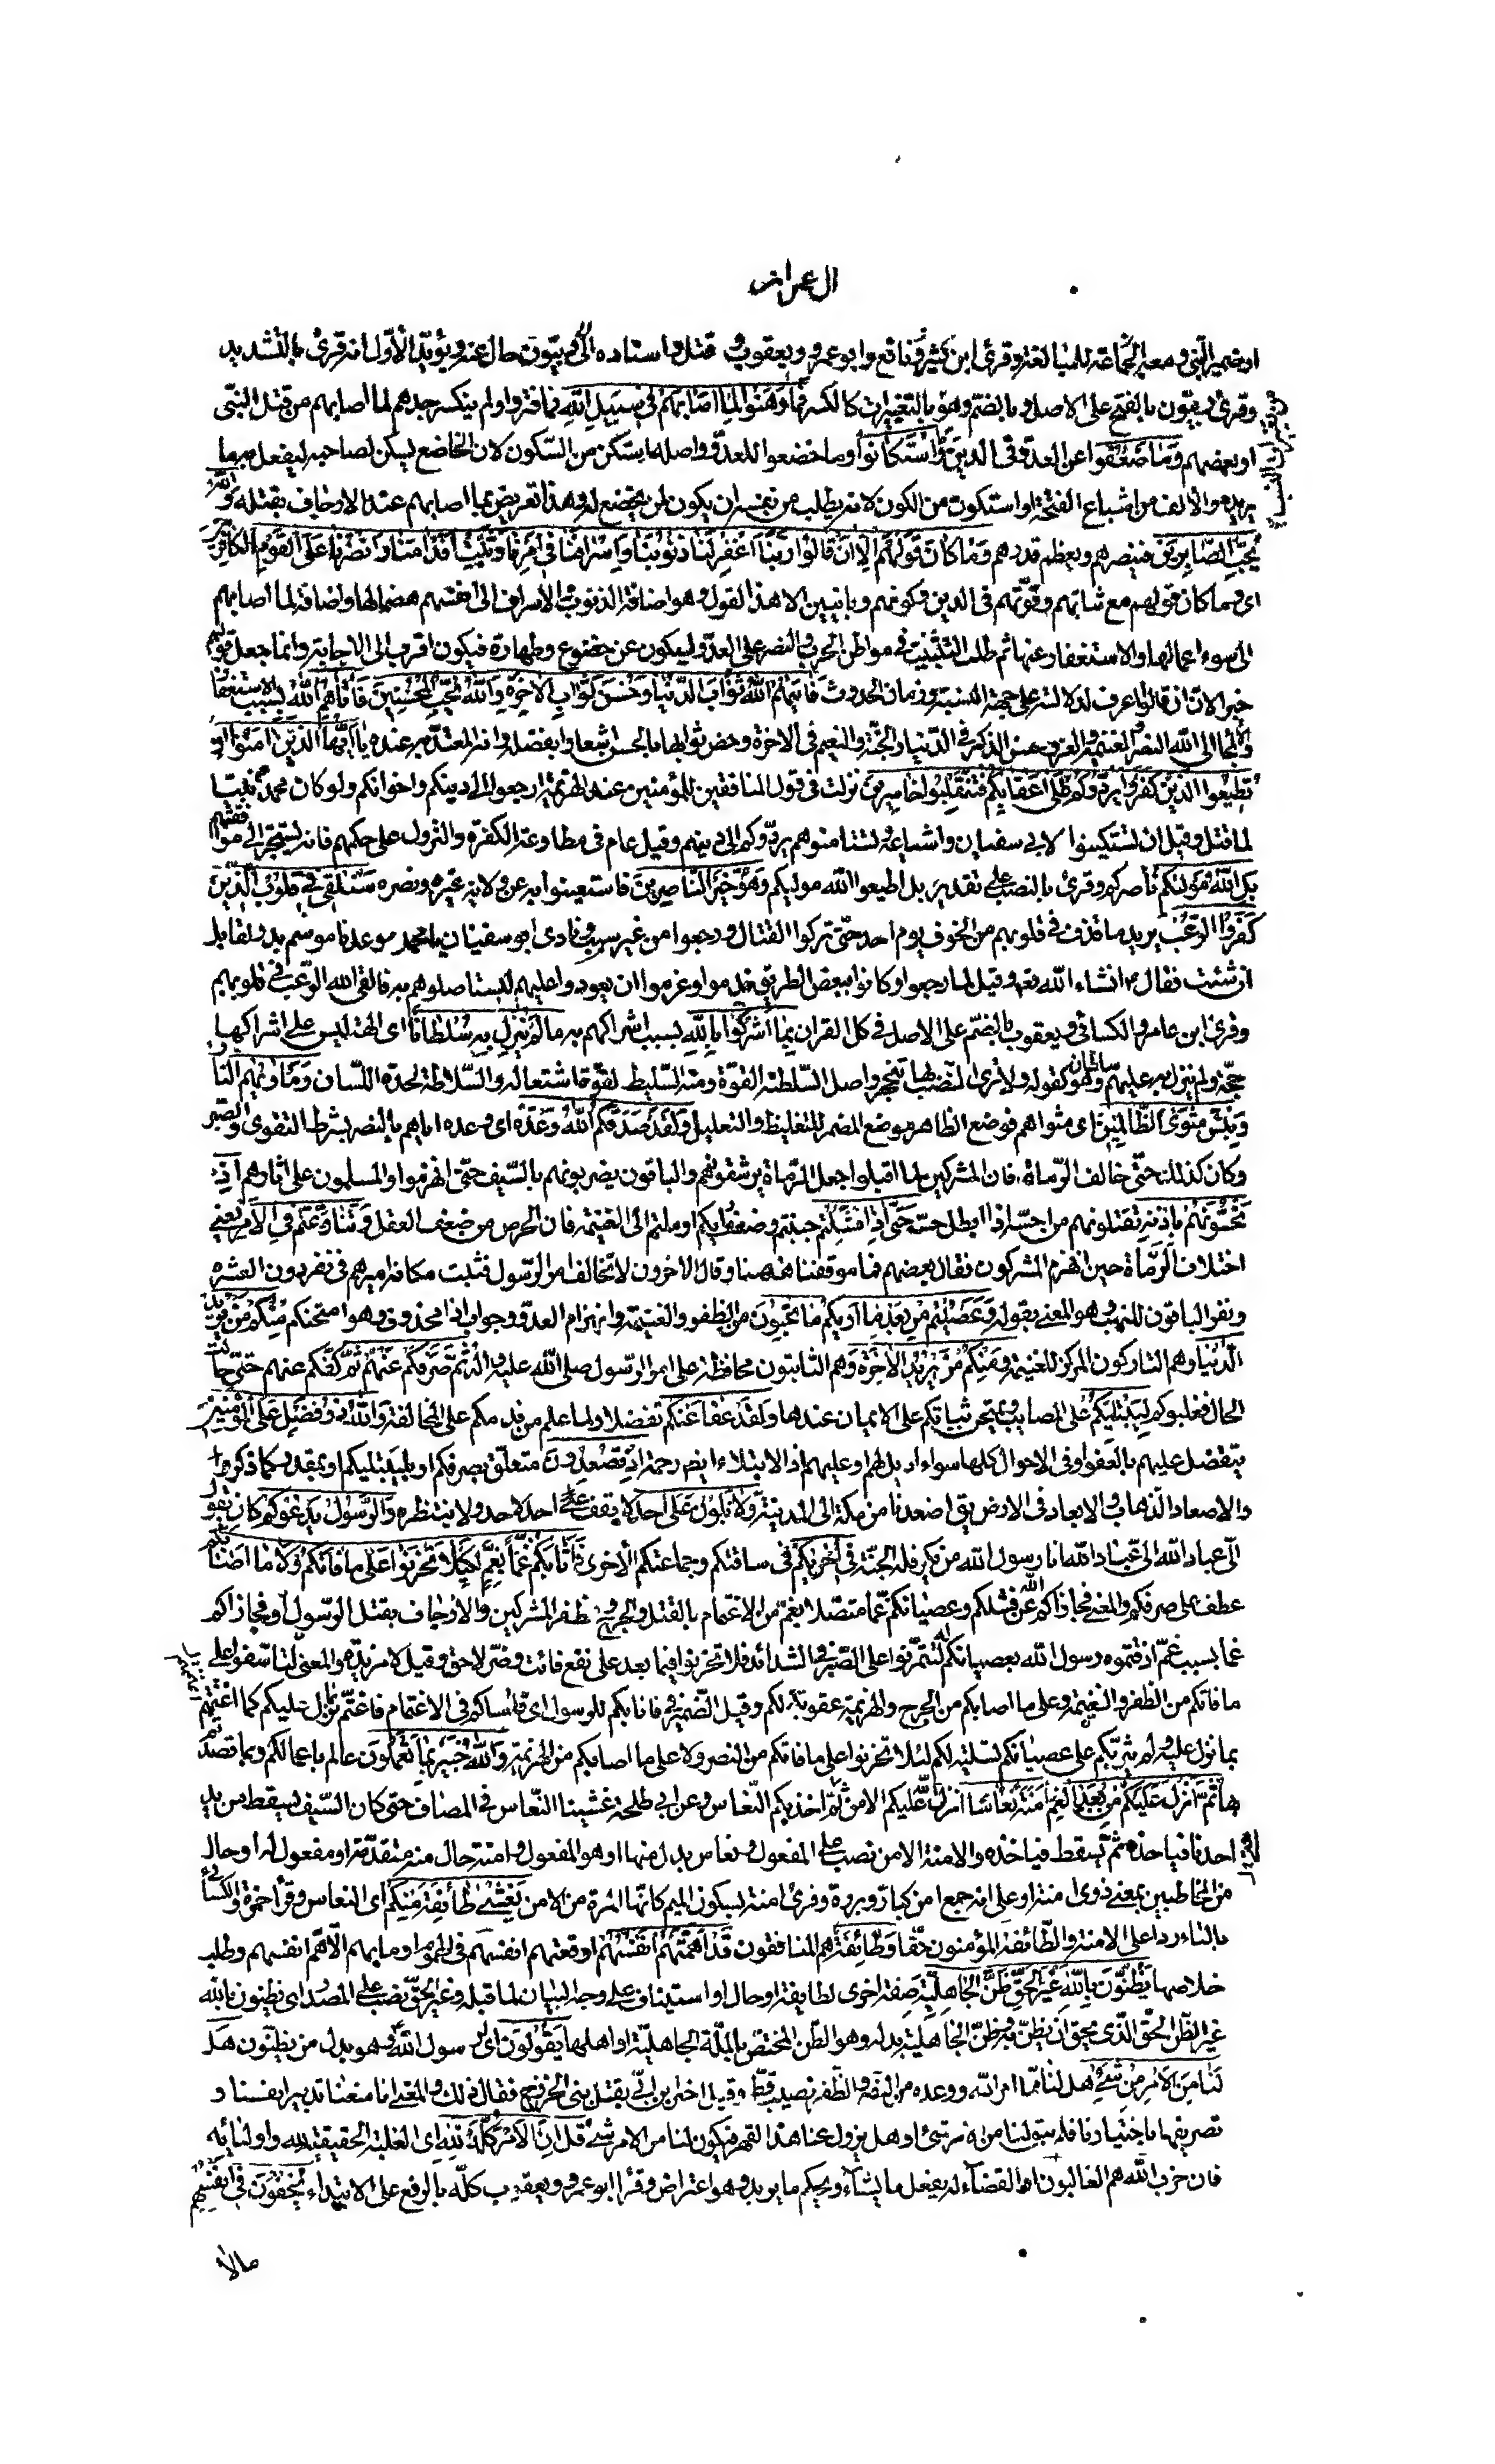 ال عمران
او ضمير النبي ومعه الجماعة للمبالغة وقرئ ابن كثير ونافع وابو عمرو ويعقوب قتل واسناده الى ربيون حال عنه ويؤيد الاول انه قرئ بالتشديد
وقرئ ربيون بالفتح على الاصل وبالضم وهو بالتغييرات كالكسر فما وهنوا لما اصابهم في سبيل الله فما فتروا ولم ينكسر جدهم لما اصابهم من قتل النبي
او بعضهم وما ضعفوا عن العدو في الدين وما استكانوا وما خضعوا للعدو واصله استكن من السكون لان الخاضع يسكن لصاحبه ليفعل به ما
يريده والالف من اشباع الفتحة او استكون من الكون لانه يطلب من نفسه ان يكون لمن يخضع له وهذا تعريض بما اصابهم عند الارجاف بقتله والله
يحب الصابرين فينصرهم ويعظم قدرهم وما كان قولهم الا ان قالوا ربنا اغفر لنا ذنوبنا واسرافنا في امرنا وثبت اقدامنا وانصرنا على القوم الكافرين
اى وما كان قولهم مع ثباتهم وقوتهم فى الدين وكونهم ربانيين الا هذا القول وهو اضافة الذنوب والاسراف الى انفسهم هضما لها واضافة لما اصابهم
الى سوء اعمالها والاستغفار عنها ثم طلب التثبيت في مواطن الحرب والنصر على العدو ليكون عن خضوع وطهارة فيكون اقرب الى الاجابة وانما جعل قولهم
خبرا لان ان قالوا اعرف لدلالته على جهة النسبة وزمان الحدوث فآتاهم الله ثواب الدنيا وحسن ثواب الاخرة والله يحب المحسنين فآتاهم الله بسبب الاستغفار
واللجا الى الله النصر والغنيمة والعز وحسن الذكر فى الدنيا والجنة والنعيم فى الاخرة وخص ثوابها بالحسن اشعارا بفضله وانه المعتد به عنده يا ايها الذين آمنوا ان
تطيعوا الذين كفروا يردوكم على اعقابكم فتنقلبوا خاسرين نزلت فى قول المنافقين للمؤمنين عند الهزيمة ارجعوا الى دينكم واخوانكم ولو كان محمد نبيا
لما قتل وقيل ان تستكينوا لابى سفيان واشياعه وتستامنوهم يردوكم الى دينهم وقيل عام فى مطاوعة الكفرة والنزول على حكمهم فانه يستجر الى موافقتهم
بل الله مولاكم ناصركم وقرئ بالنصب على تقدير بل اطيعوا الله مولاكم وهو خير الناصرين فاستعينوا به عن ولاية غيره ونصره سنلقي في قلوب الذين
كفروا الرعب يريد ما قذف فى قلوبهم من الخوف يوم احد حتى تركوا القتال ورجعوا من غير سبب ونادى ابو سفيان يا محمد موعدنا موسم بدر لقابل
ان شئت فقال ان شاء الله وقيل لما رجعوا وكانوا ببعض الطريق ندموا وعزموا ان يعودوا عليهم ليستاصلوهم فالقى الله الرعب فى قلوبهم
وقرئ ابن عامر والكسائى ويعقوب بالضم على الاصل فى كل القران بما اشركوا بالله بسبب اشراكهم به ما لم ينزل به سلطانا اى الهة ليس على اشراكها
حجة ولم ينزل عليهم به سلطان وهو كقوله ولا ترى الضب بها ينجحر واصل السلطنة القوة ومنه السليط لقوة اشتعاله والسلاطة لحدة اللسان وماواهم النار
وبئس مثوى الظالمين اى مثواهم فوضع الظاهر موضع المضمر للتغليظ والتعليل ولقد صدقكم الله وعده اى وعده اياهم بالنصر بشرط التقوى والصبر
وكان كذلك حتى خالف الرماة فان المشركين لما اقبلوا جعل الرماة يرشقونهم والباقون يضربونهم بالسيف حتى انهزموا والمسلمون على اثارهم اذ
تحسونهم باذنه تقتلونهم من احسه اذا ابطل حسه حتى اذا فشلتم جبنتم وضعف رايكم او ملتم الى الغنيمة فان الحرص من ضعف العقل وتنازعتم في الامر يعنى
اختلاف الرماة حين انهزم المشركون فقال بعضهم فما موقفنا ههنا وقال الاخرون لا نخالف امر الرسول فثبت مكانه اميرهم فى نفر دون العشرة
ونفر الباقون للنهب وهو المعنى بقوله وعصيتم من بعد ما اراكم ما تحبون من الظفر والغنيمة وانهزام العدو وجواب اذا محذوف وهو امتحنكم منكم من يريد
الدنيا وهم التاركون المركز للغنيمة ومنكم من يريد الاخرة وهم الثابتون محافظة على امر الرسول صلى الله عليه واله ثم صرفكم عنهم ثم كفكم عنهم حتى حالت
الحال فغلبوكم ليبتليكم على المصايب ويمتحن ثباتكم على الايمان عندها ولقد عفا عنكم تفضلا ولما علم من ندمكم على المخالفة والله ذو فضل على المؤمنين
يتفضل عليهم بالعفو او فى الاحوال كلها سواء اديل لهم او عليهم اذ الابتلاء ايضا رحمة اذ تصعدون متعلق بصرفكم او ليبتليكم او بمقدر كاذكروا
والاصعاد الذهاب والابعاد فى الارض يق اصعدنا من مكة الى المدينة ولا تلوون على احد لا يقف احد لاحد ولا ينتظره والرسول يدعوكم كان يقول
الى عباد الله الى عباد الله انا رسول الله من يكر فله الجنة في اخريكم فى ساقتكم وجماعتكم الاخرى فاثابكم غما بغم لكيلا تحزنوا على ما فاتكم ولا ما اصابكم
عطف على صرفكم والمعنى فجازاكم الله عن فشلكم وعصيانكم غما متصلا بغم من الاغتمام بالقتل والجرح وظفر المشركين والارجاف بقتل الرسول او فجازاكم
غما بسبب غم اذقتموه رسول الله بعصيانكم له لتتمرنوا على الصبر فى الشدائد فلا تحزنوا فيما بعد على نفع فائت وضر لاحق وقيل لا مزيدة والمعنى لتاسفوا على
ما فاتكم من الظفر والغنيمة وعلى ما اصابكم من الجرح والهزيمة عقوبة لكم وقيل الضمير فى فاثابكم للرسول اى فاساكم فى الاغتمام فاغتم بما نزل عليكم كما اغتممتم
بما نزل عليه ولم يثربكم على عصيانكم تسلية لكم لئلا تحزنوا على ما فاتكم من النصر ولا على ما اصابكم من الهزيمة والله خبير بما تعملون عالم باعمالكم وبما قصدتم
بها ثم انزل عليكم من بعد الغم امنة نعاسا انزل الله عليكم الامن حتى اخذكم النعاس وعن ابى طلحة غشينا النعاس فى المصاف حتى كان السيف يسقط من يد
احدنا فياخذه ثم يسقط فياخذه والامنة الامن نصب على المفعول ونعاسا بدل منها او هو المفعول وامنة حال منه متقدمة او مفعول له او حال
من المخاطبين بمعنى ذوى امنة او على انه جمع امن كبار وبررة وقرئ امنة بسكون الميم كانها المرة من الامن يغشى طائفة منكم اى النعاس وقرأ حمزة والكسائى
بالتاء ردا على الامنة والطائفة المؤمنون حقا وطائفة هم المنافقون قد اهمتهم انفسهم اوقعتهم انفسهم فى الهموم او ما بهم الا هم انفسهم وطلب
خلاصها يظنون بالله غير الحق ظن الجاهلية صفة اخرى لطايفة او حال او استيناف على وجه البيان لما قبله وغير الحق نصب على المصدر اى يظنون بالله
غير الظن الحق الذى يحق ان يظن به وظن الجاهلية بدله وهو الظن المختص بالملة الجاهلية او اهلها يقولون اى لرسول الله وهو بدل من يظنون هل
لنا من الامر من شئ هل لنا مما امر الله ووعده من النصر والظفر نصيب قط وقيل اخبر ابن ابى بقتل بنى الخزرج فقال ذلك والمعنى انا منعنا تدبير انفسنا و
تصريفها باختيارنا فلم يبق لنا من الامر شئ او هل يزول عنا هذا القهر فيكون لنا من الامر شئ قل ان الامر كله لله اى الغلبة الحقيقية لله واوليائه
فان حزب الله هم الغالبون او القضاء له يفعل ما يشاء ويحكم ما يريد وهو اعتراض وقرأ ابو عمرو ويعقوب كله بالرفع على الابتداء يخفون في انفسهم
مالا